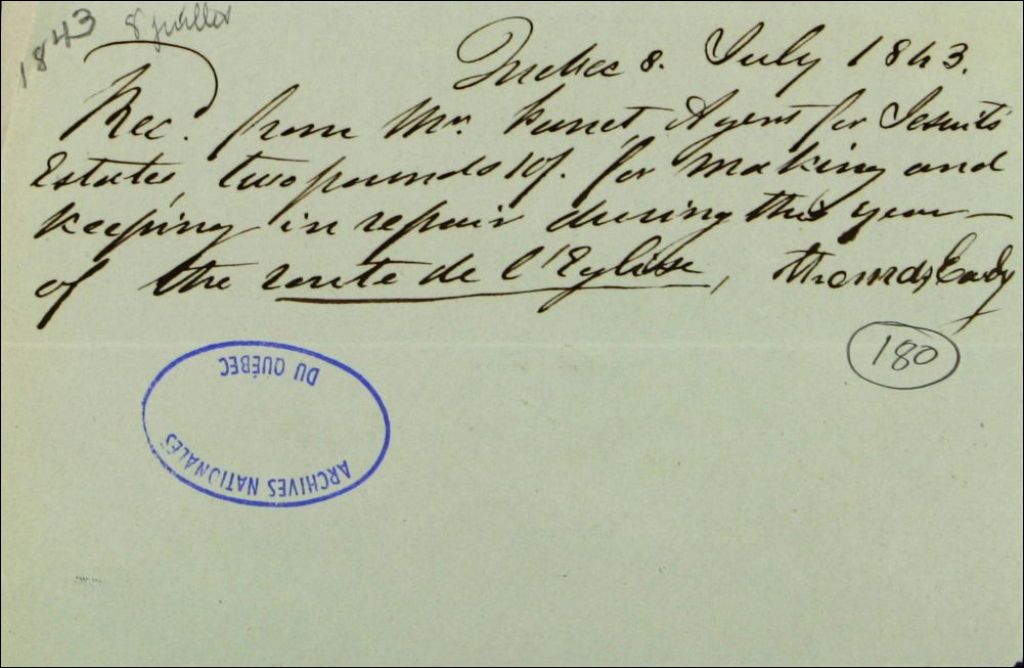 1843
8 juillet
Quebec 8. July 1843.
Rec. from Mr. Panet, Agent for Jesuits
Estates, two pounds 10/. for making and
keeping in repair during this year
of the route de l'Eglise, thomas
180
ARCHIVES NATIONALES
DU QUÉBEC